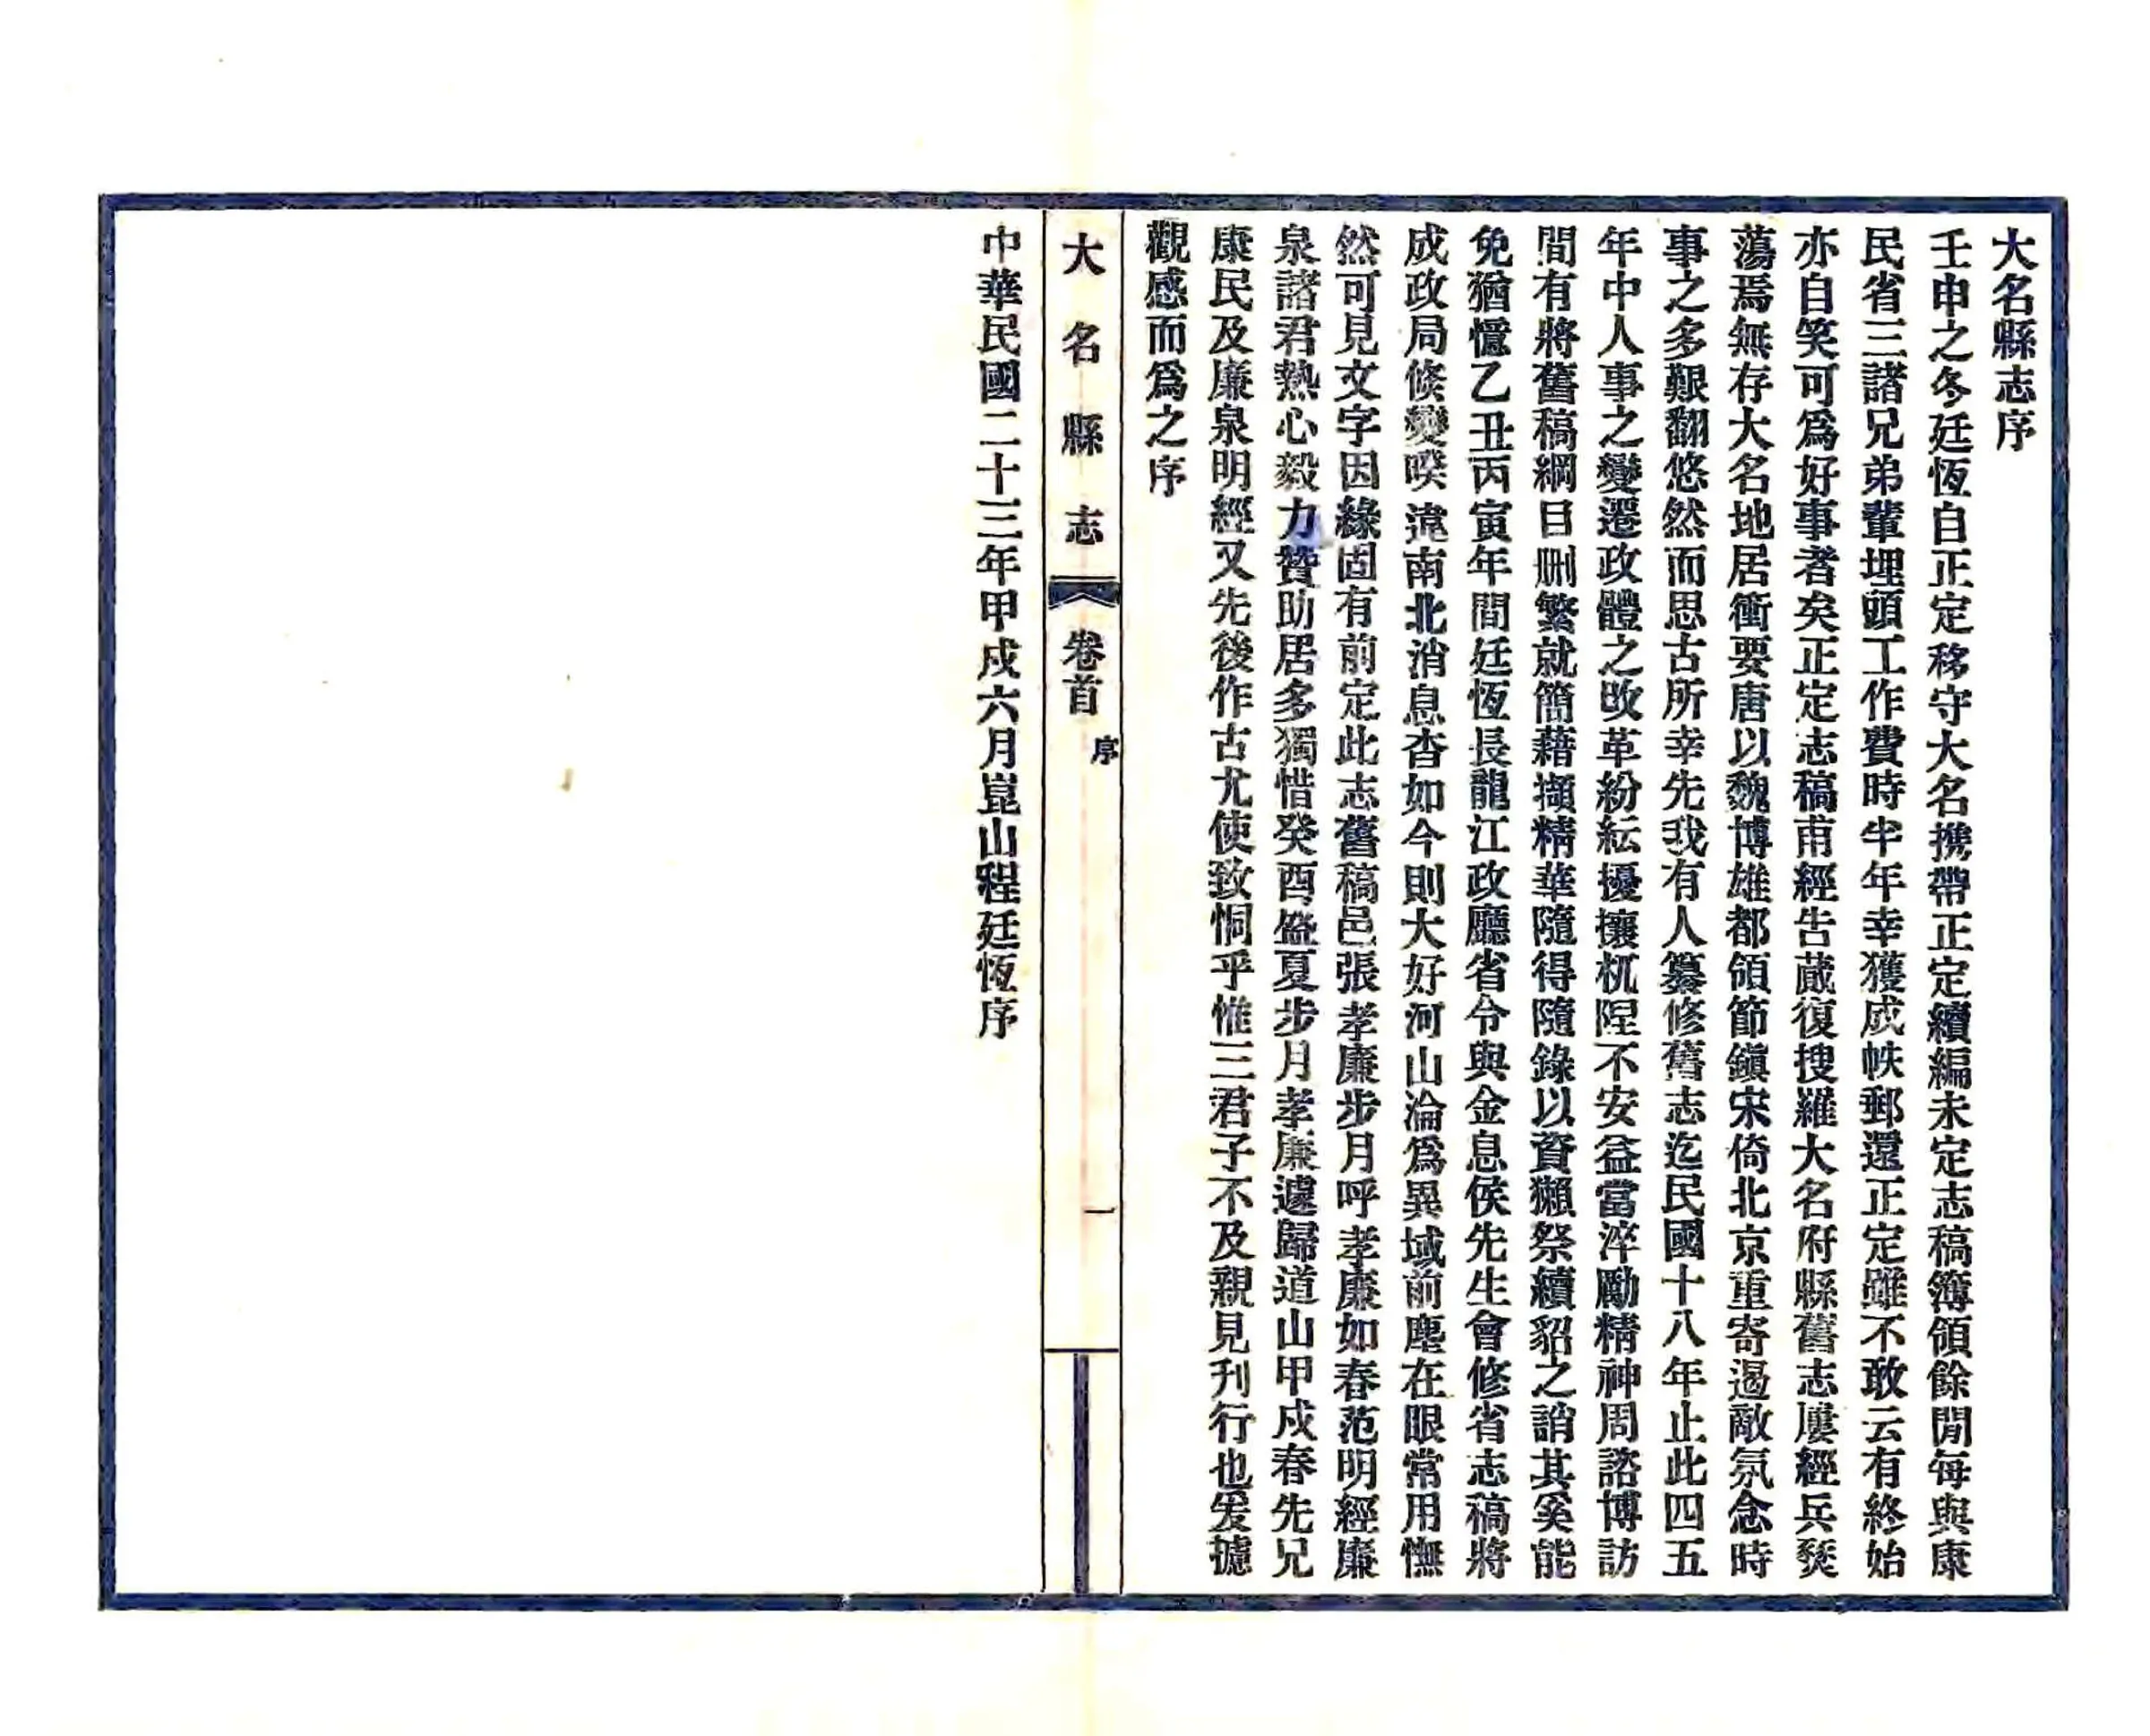 大名縣志序
壬申之冬廷恆自正定移守大名攜帶正定續編未定志稿簿領餘閒每與康
民省三諸兄弟輩埋頭工作費時半年幸獲成帙郵還正定雖不敢云有終始
亦自笑可爲好事者矣正定志稿甫經告蕆復搜羅大名府縣舊志屢經兵燹
蕩焉無存大名地居衝要唐以魏博雄都領節鎭宋倚北京重寄遏敵氛念時
事之多艱翻悠然而思古所幸先我有人纂修舊志迄民國十八年止此四五
年中人事之變遷政體之改革紛紜擾攘杌隉不安益當淬勵精神周諮博訪
間有將舊稿綱目刪繁就簡藉擷精華隨得隨錄以資獺祭續貂之誚其奚能
免猶憶乙丑丙寅年間廷恆長龍江政廳省令與金息侯先生會修省志稿將
成政局倏變暌違南北消息杳如今則大好河山淪爲異域前塵在眼常用憮
然可見文字因緣固有前定此志舊稿邑張孝廉步月呼孝廉如春范明經廉
泉諸君熱心毅力贊助居多獨惜癸酉盛夏步月孝廉遽歸道山甲戌春先兄
康民及廉泉明經又先後作古尤使致恫乎惟三君子不及親見刊行也爰攄
觀感而爲之序
大名縣志
卷首
序
一
中華民國二十三年甲戌六月崑山程廷恆序